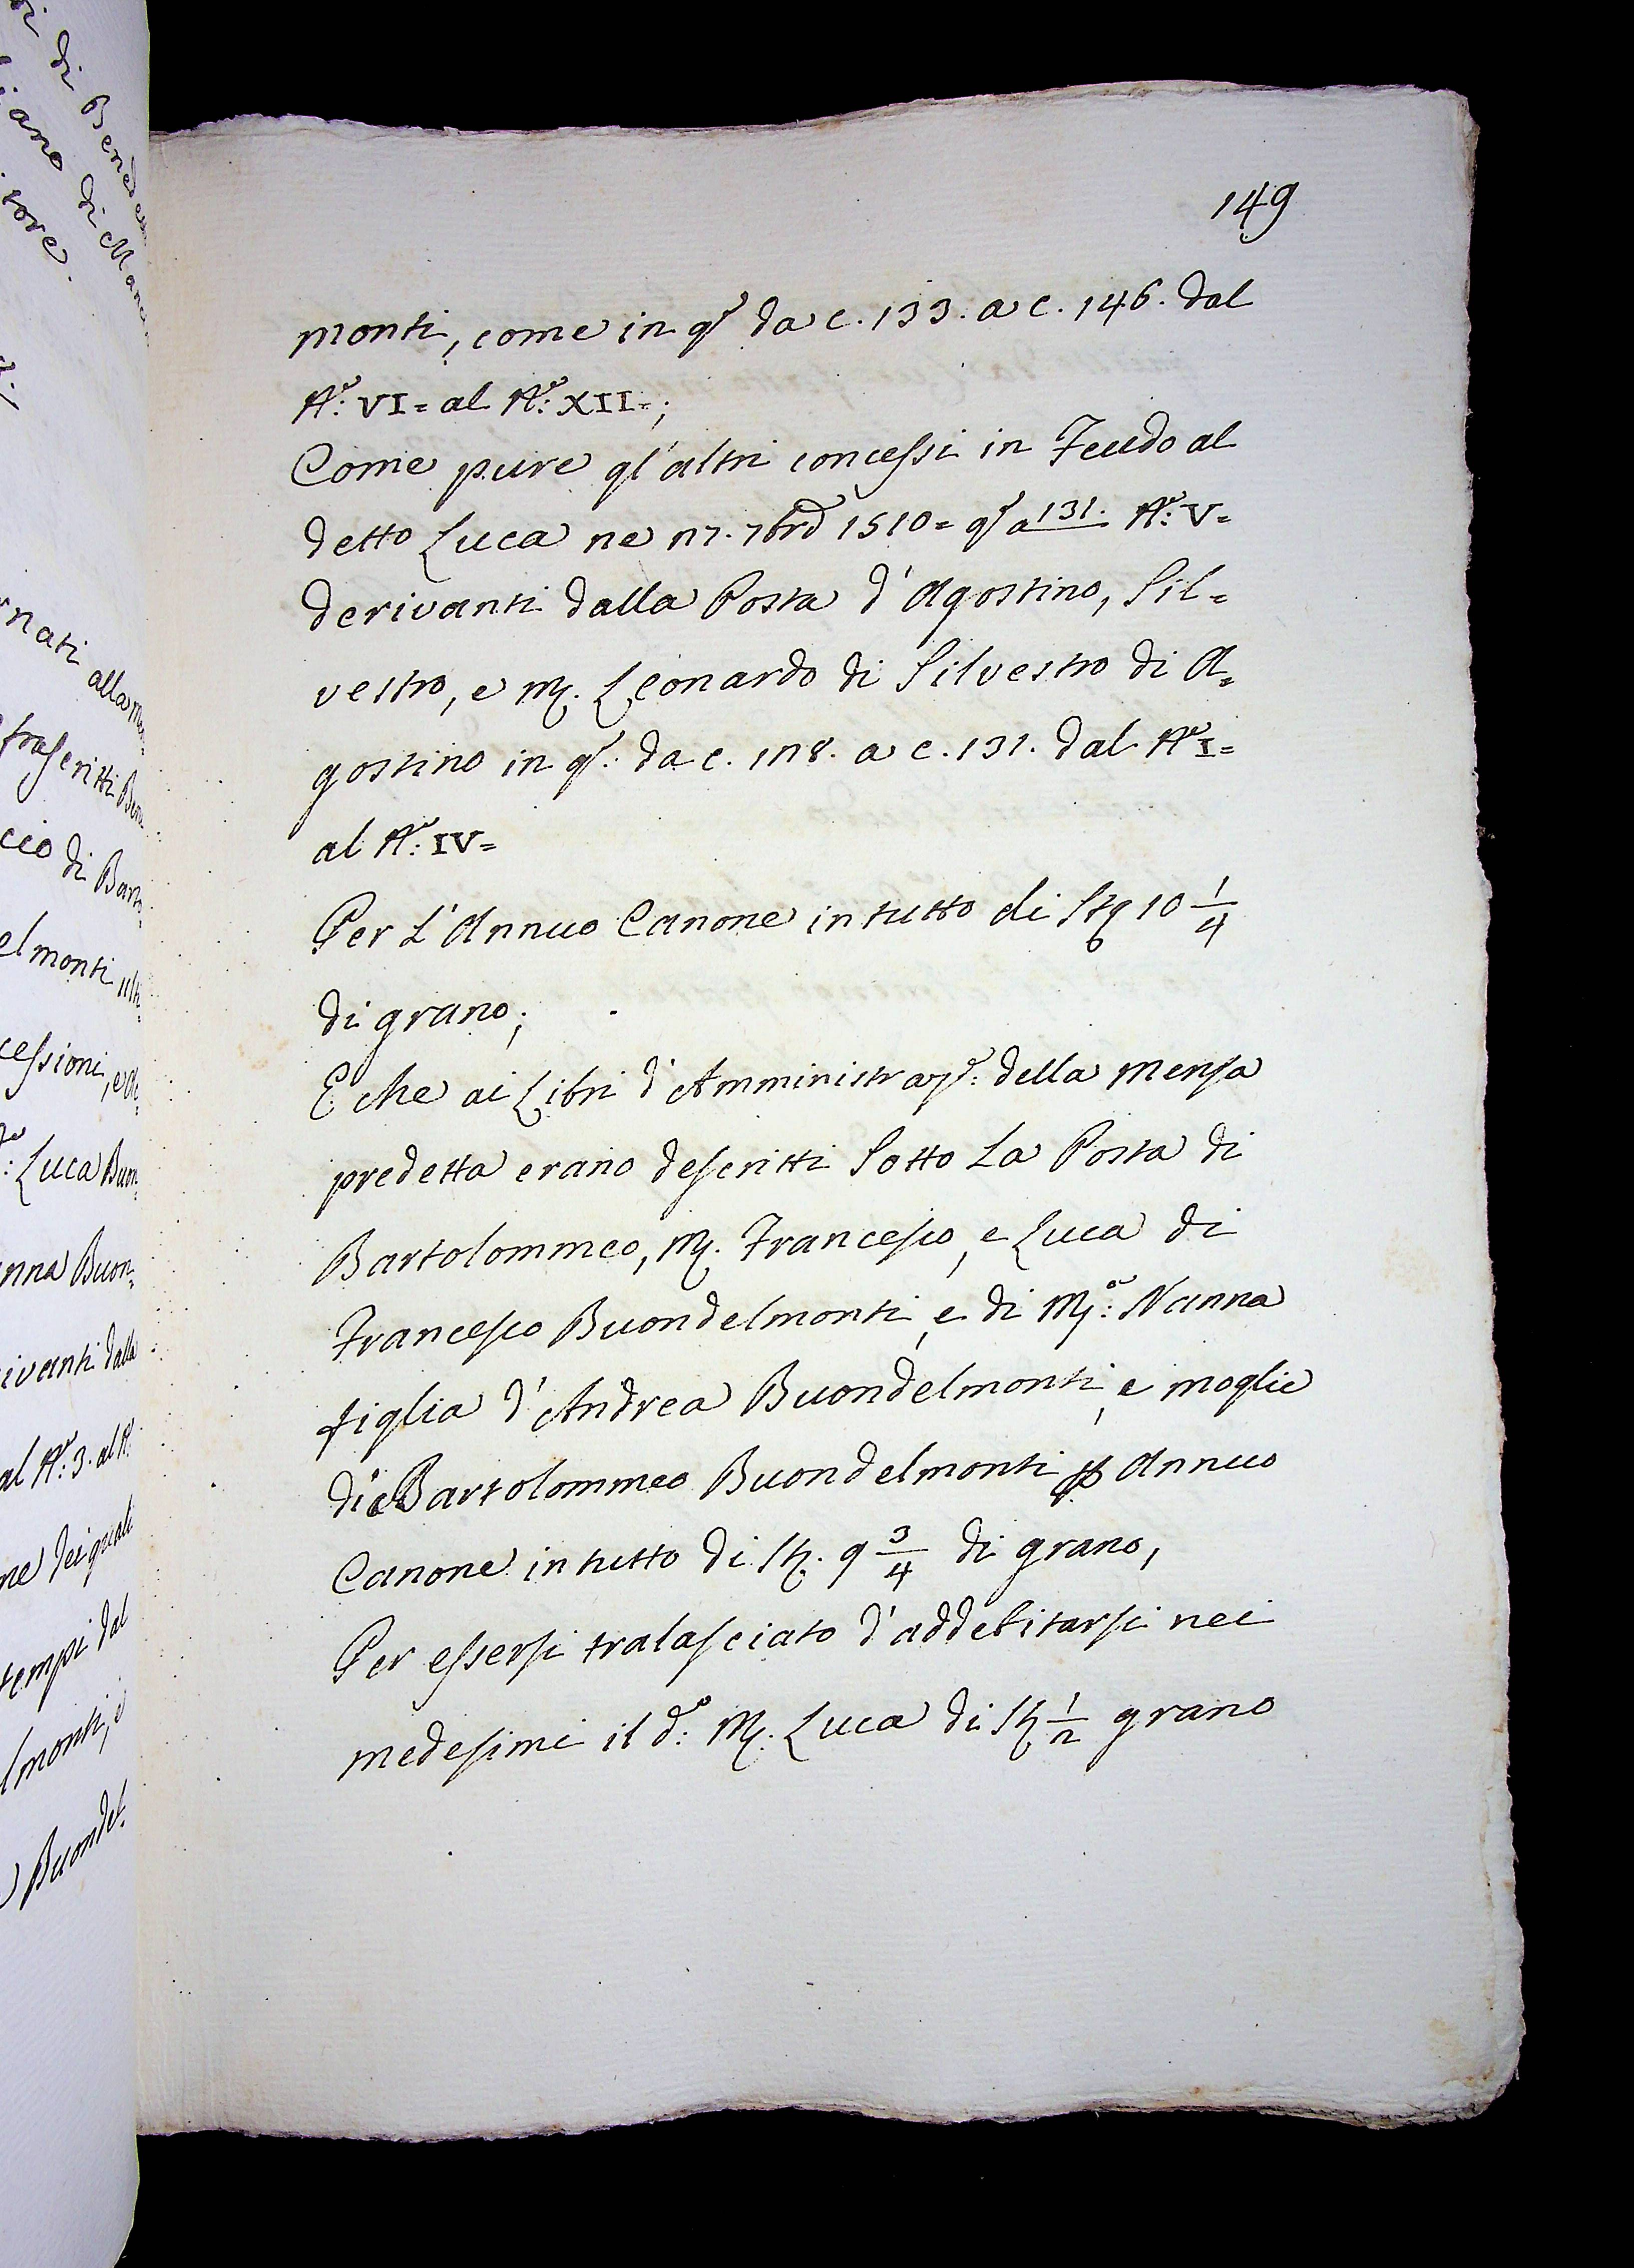 149
monti, come in q.º da c. 133. a c. 146. dal
N.º: VI = al N.º: XII = ;
Come pure gl'altri concessi in Feudo al
detto Luca ne 27. 7bre 1510 = q.º a 131. N.º: V =
derivanti dalla Posta d'Agostino, Sil=
vestro, e M. Leonardo di Silvestro di A=
gostino in q.º: da c. 128. a c. 131. dal N.º I =
al N.º: IV =
Per L'Annuo Canone in tutto di Sta 10 1/4
di grano;
E che ai Libri d'Amministraz.e: della Mensa
predetta erano descritti Sotto La Posta di
Bartolommeo, M. Francesco, e Luca di
Francesco Buondelmonti, e di M.a: Nanna
figlia d'Andrea Buondelmonti, e moglie
di Bartolommeo Buondelmonti p Annuo
Canone in tutto di Sta. 9 3/4 di grano,
Per essersi tralasciato d'addebitarsi nei
medesimi il d.º: M. Luca di Sta 1/2 grano
nati alla
frascritti
cio di Barto
elmonti
cessioni,
: Luca Buon
nna Buon=
ivanti dalla
al N.º: 3. al N.
ne dei quali
tempi dal
lmonti, e
Buondel=